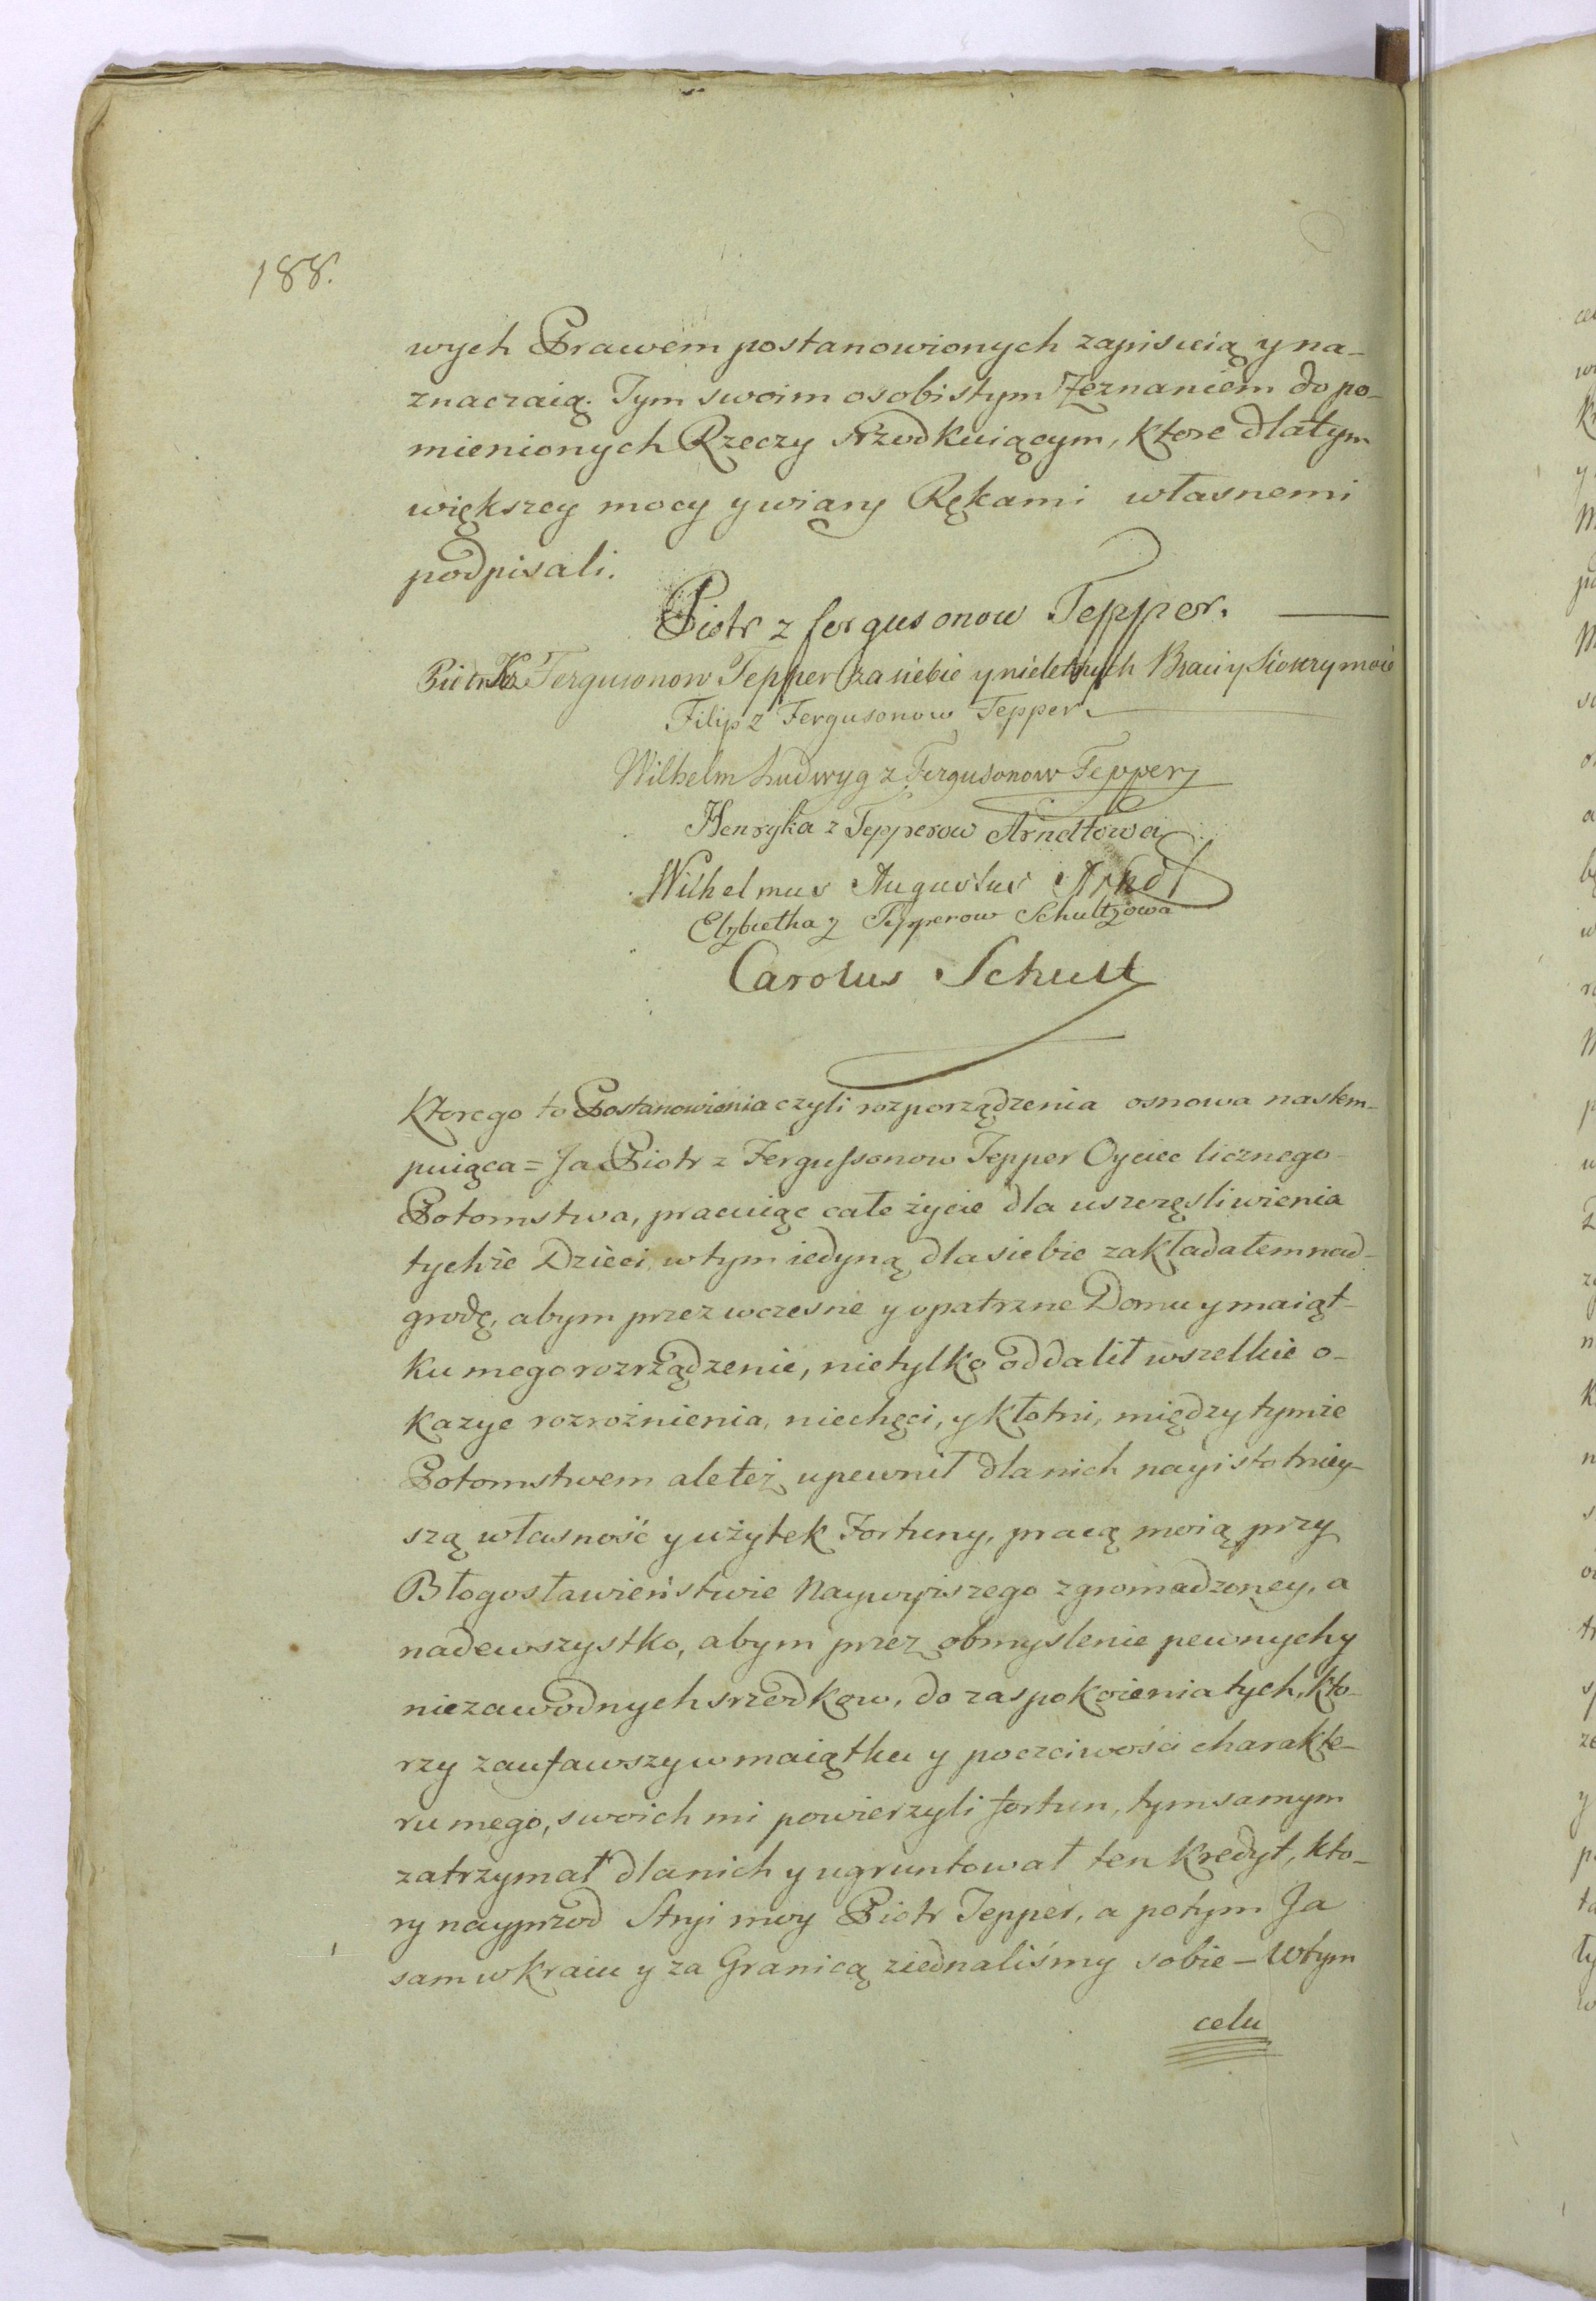 188.
wych Prawem postanowionych zapisuią y na-
znaczaią. Tym swoim osobistym Zeznaniem do po-
mienionych Rzeczy srzodkuiącym, ktore dla tym
większey mocy y wiary Rękami własnemi
podpisali.
Piotr z fergusonow Tepper.
Piotr K z Fergusonow Tepper za siebie y nieletnych Braci y Siostry moie
Filip z Fergusonow Tepper
Wilhelm Ludwyg z Fergusonow Tepper
Henryka z Tepperow Arndtowa
Wilhelmus Augustus Arndt
Elzbietha z Tepperow Schultzowa
Carolus Schultz
Ktorego to Postanowienia czyli rozporządzenia osnowa nastem-
puiąca = Ja Piotr z Fergussonow Tepper Oyciec licznego
Potomstwa, pracuiąc całe życie dla uszczęsliwienia
tychże Dzieci w tym iedyną dla siebie zakładałem nad-
grodę, abym przez wczesne y opatrzne Domu y maiąt-
ku mego rozrządzenie, nietylko oddalił wszelkie o-
kazye rozrożnienia, niechęci, y kłotni, między tymże
Potomstwem ale też upewnił dla nich nayistotniey-
szą własność y użytek Fortuny, pracą moią przy
Błogosławieństwie Naywyższego zgromadzoney, a
nadewszystko, abym przez obmyslenie pewnych y
niezawodnych srzodkow, do zaspokoienia tych, kto-
rzy zaufawszy w maiątku y poczciwości charakte-
ru mego, swoich mi powierzyli fortun, tym samym
zatrzymał dla nich y ugruntował ten kredyt, kto-
ry nayprzod Stryi moy Piotr Tepper, a potym Ja
sam w kraiu y za Granicą ziednaliśmy sobie – W tym
celu